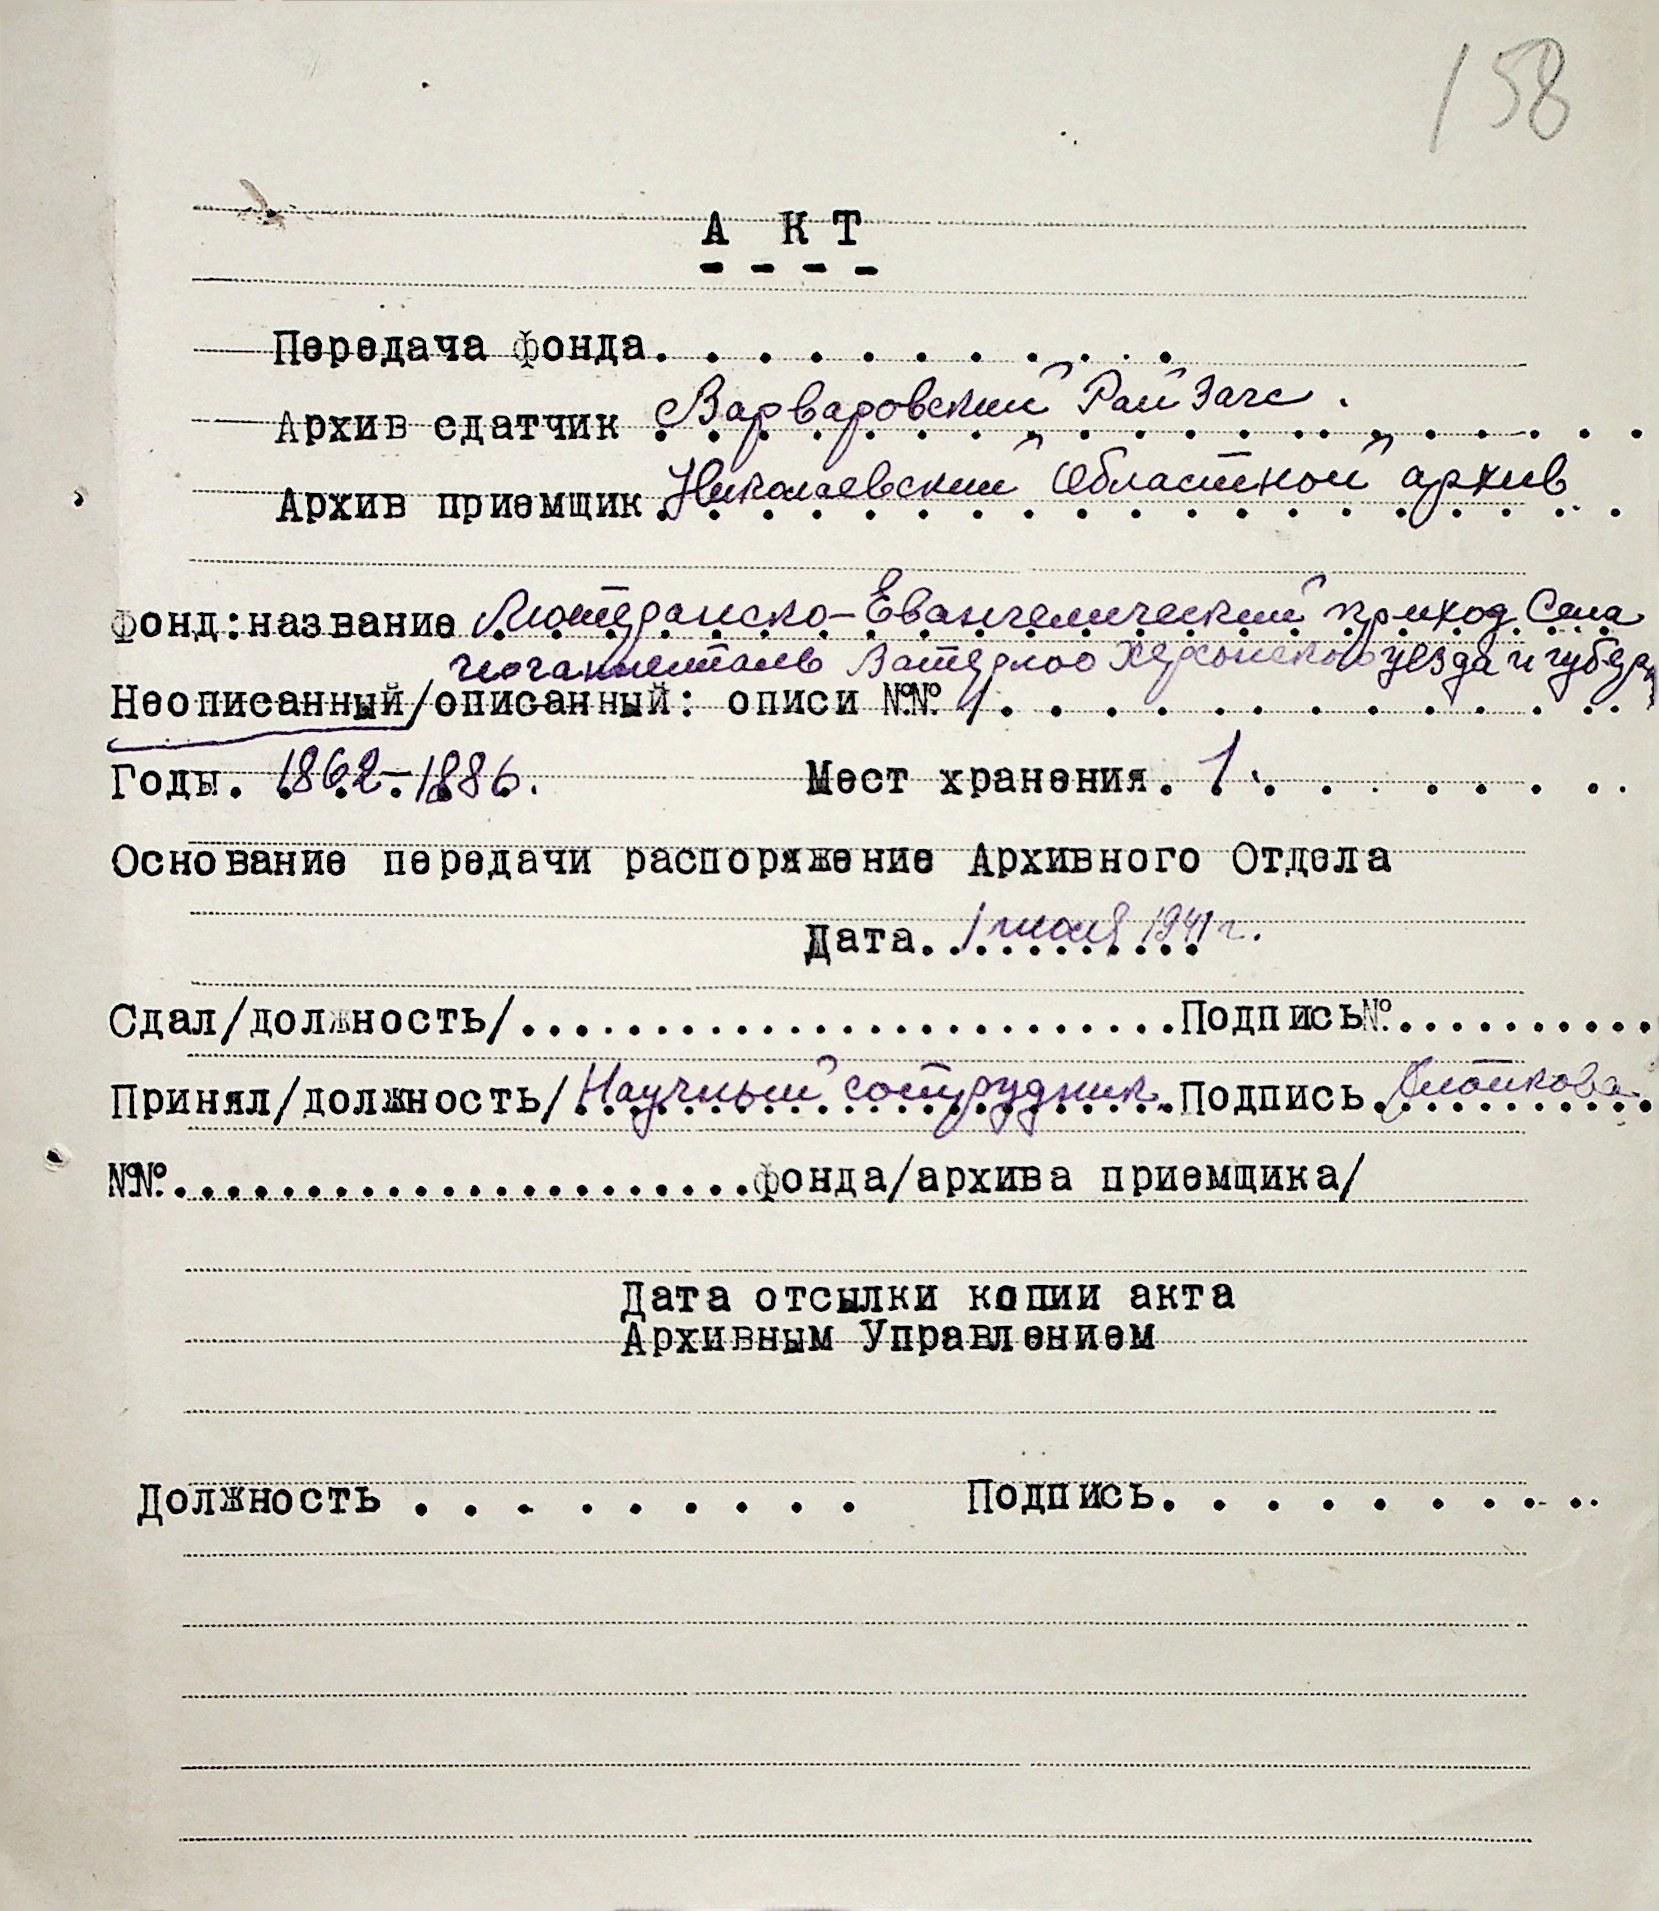 158
А К Т
- - - -
Передача фонда. . . . . . . . . . .
Архив сдатчик Варваровский РайЗагс .
Архив приемщик Николаевский Областной архив
Фонд:название Лютеранско-Евангелический приход Села
Ватерлоо Херсонского уезда и губер
Неописанный/описанный: описи №№ 1. . . . . . . . . . . .
Годы. 1862-1886. Мест хранения. 1. . . . . . . .
Основание передачи распоряжение Архивного Отдела
Дата. 1 июля 1941 г.
Сдал/должность/.........................Подпись№..........
Принял/должность/Научный сотрудник.Подпись.
№№......................фонда/архива приемщика/
Дата отсылки копии акта
Архивным Управлением
Должность . . . . . . . . . Подпись. . . . . . . . . .